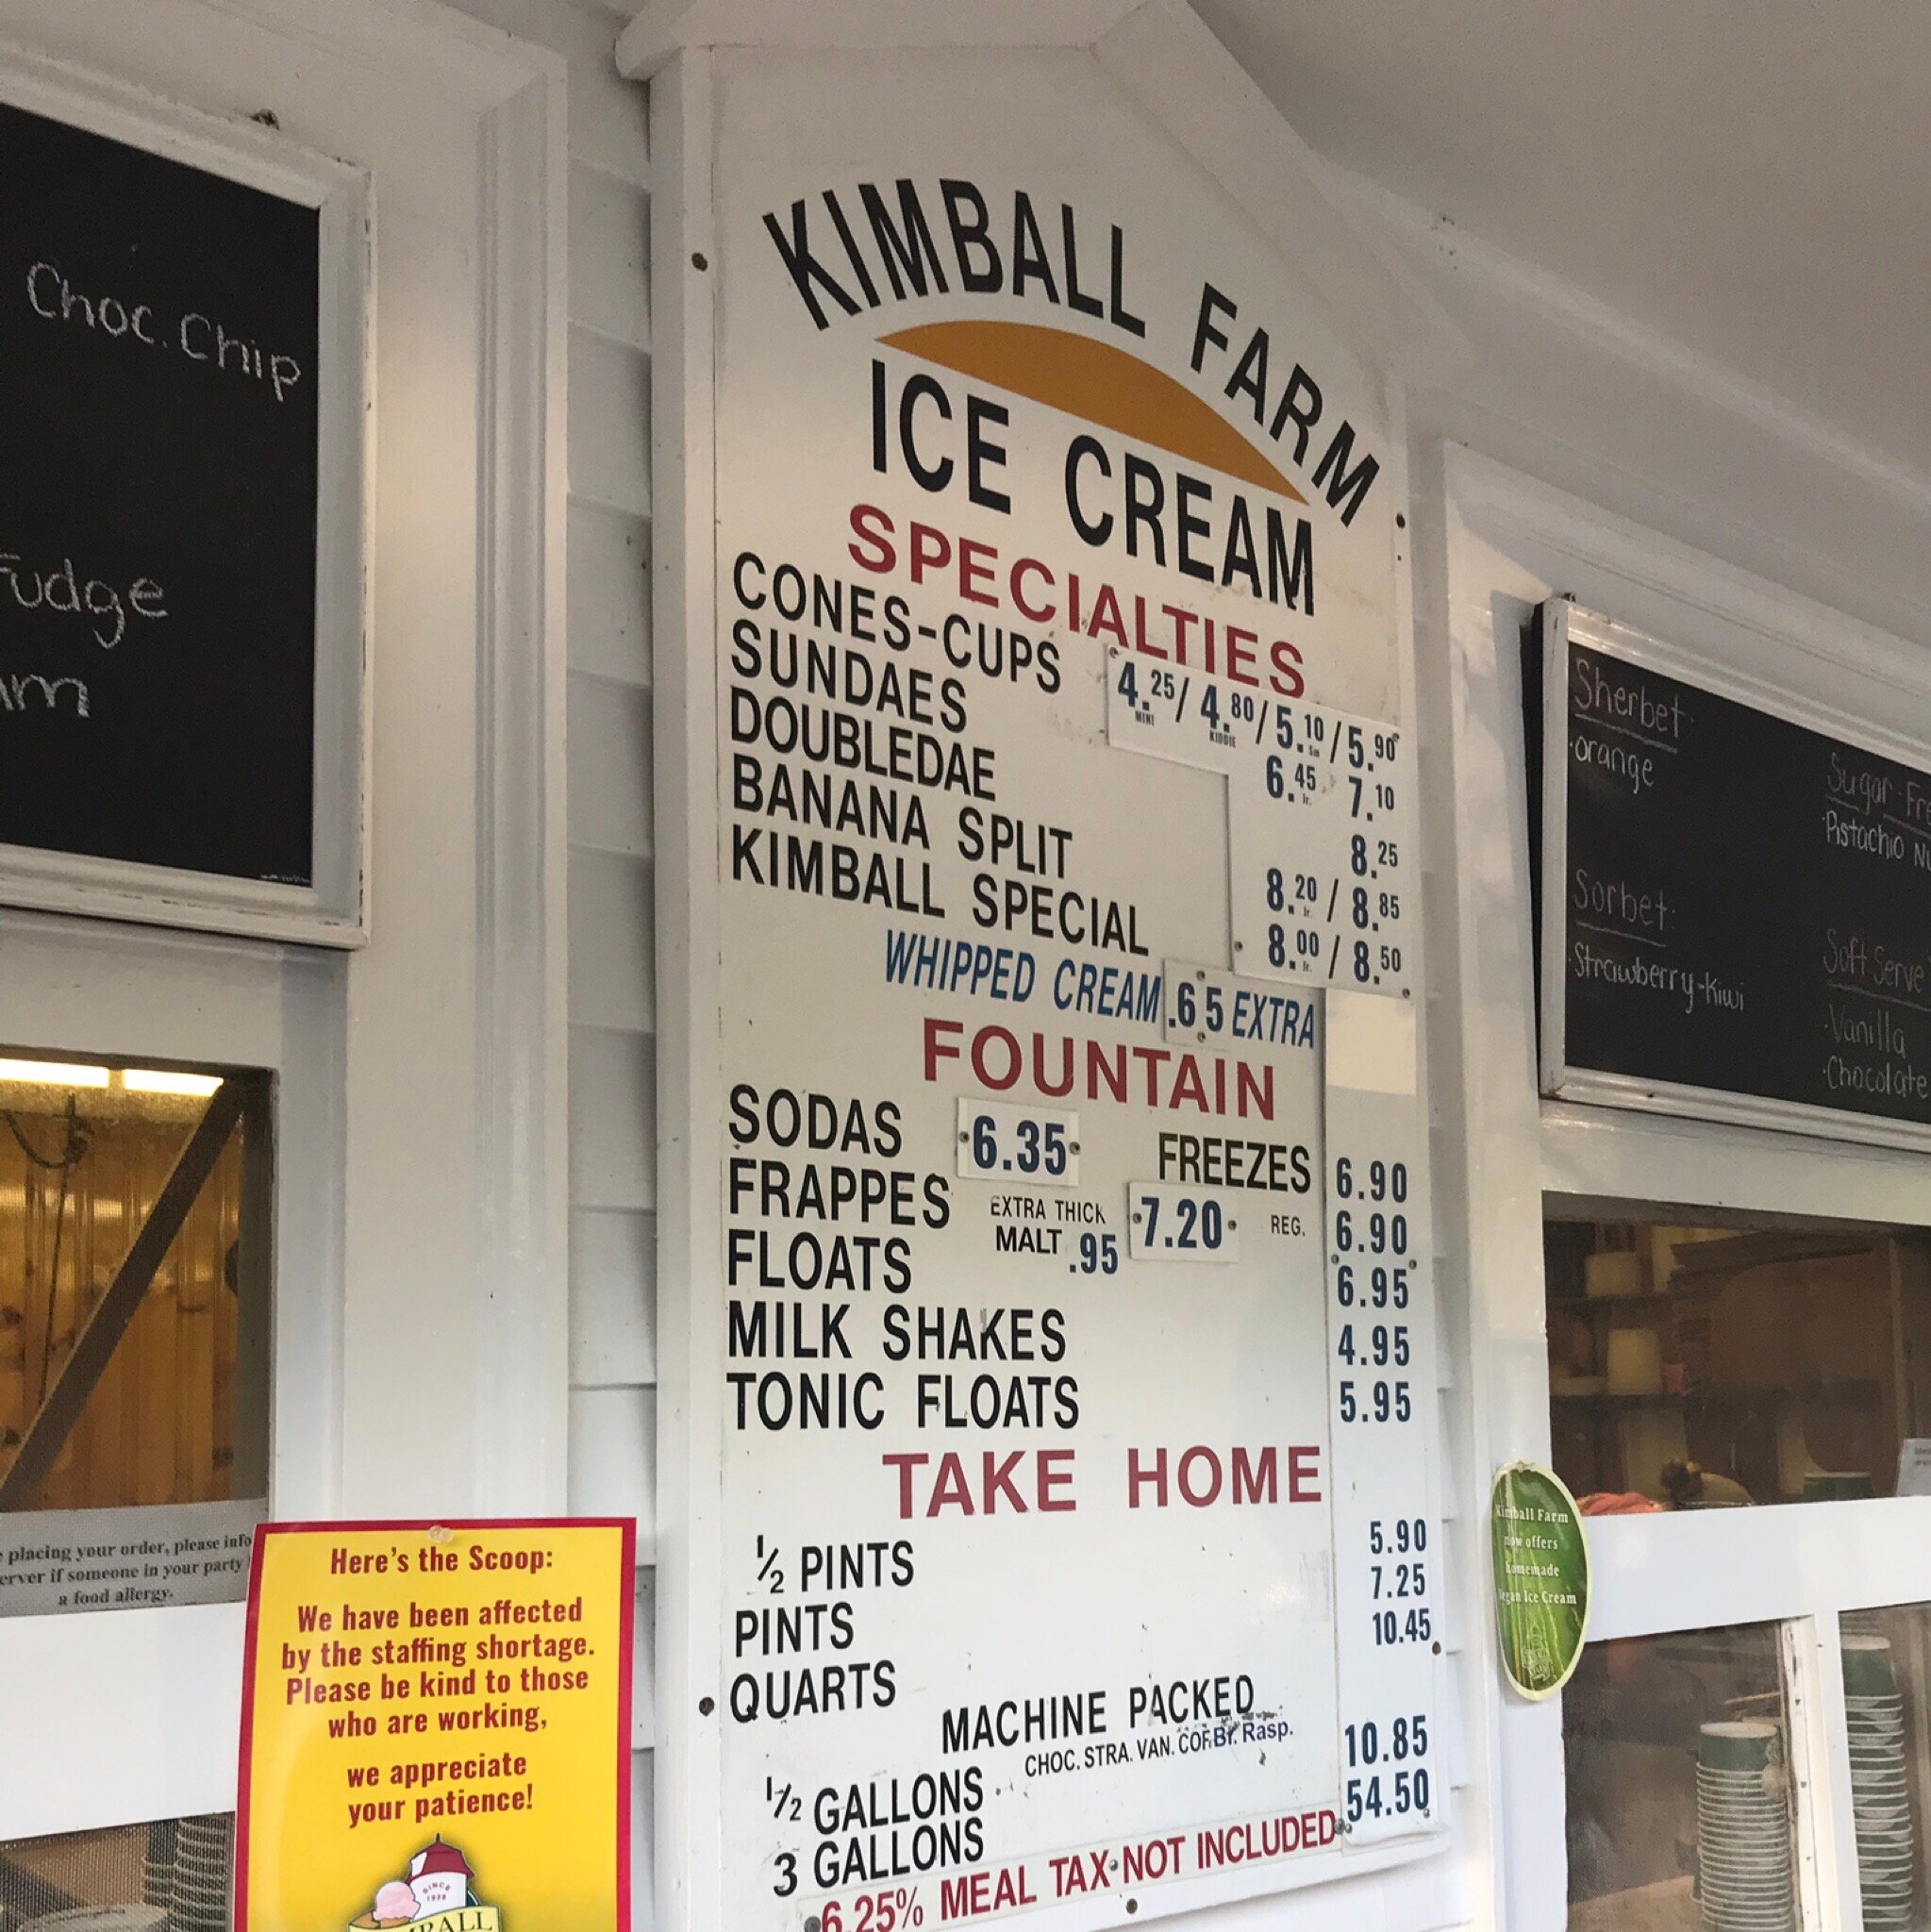 Choc. Chip
Fudge
KIMBALL FARM
ICE CREAM
SPECIALTIES
CONES-CUPS 4.25/ 4.80/ 5.10 / 5.90
MINI KIDDIE Sm
SUNDAES 6.45 7.10
Jr.
DOUBLEDAE 8.25
BANANA SPLIT 8.20 / 8.85
Jr.
KIMBALL SPECIAL 8.00 / 8.50
Jr.
WHIPPED CREAM .65 EXTRA
FOUNTAIN
SODAS 6.35 FREEZES 6.90
FRAPPES EXTRA THICK 7.20 REG. 6.90
MALT .95
FLOATS 6.95
MILK SHAKES 4.95
TONIC FLOATS 5.95
TAKE HOME
1/2 PINTS 5.90
PINTS 7.25
QUARTS 10.45
MACHINE PACKED
CHOC. STRA. VAN. COF. Bl. Rasp.
1/2 GALLONS 10.85
3 GALLONS 54.50
6.25% MEAL TAX NOT INCLUDED
Sherbet
·orange
Sorbet:
·Strawberry-Kiwi
Sugar
·Pistachio
Soft Serve
·Vanilla
·Chocolate
placing your order, please
if someone in your party
a food allergy.
Here's the Scoop:
We have been affected
by the staffing shortage.
Please be kind to those
who are working,
we appreciate
your patience!
SINCE
1939
Kimball Farm
now offers
homemade
Vegan Ice Cream